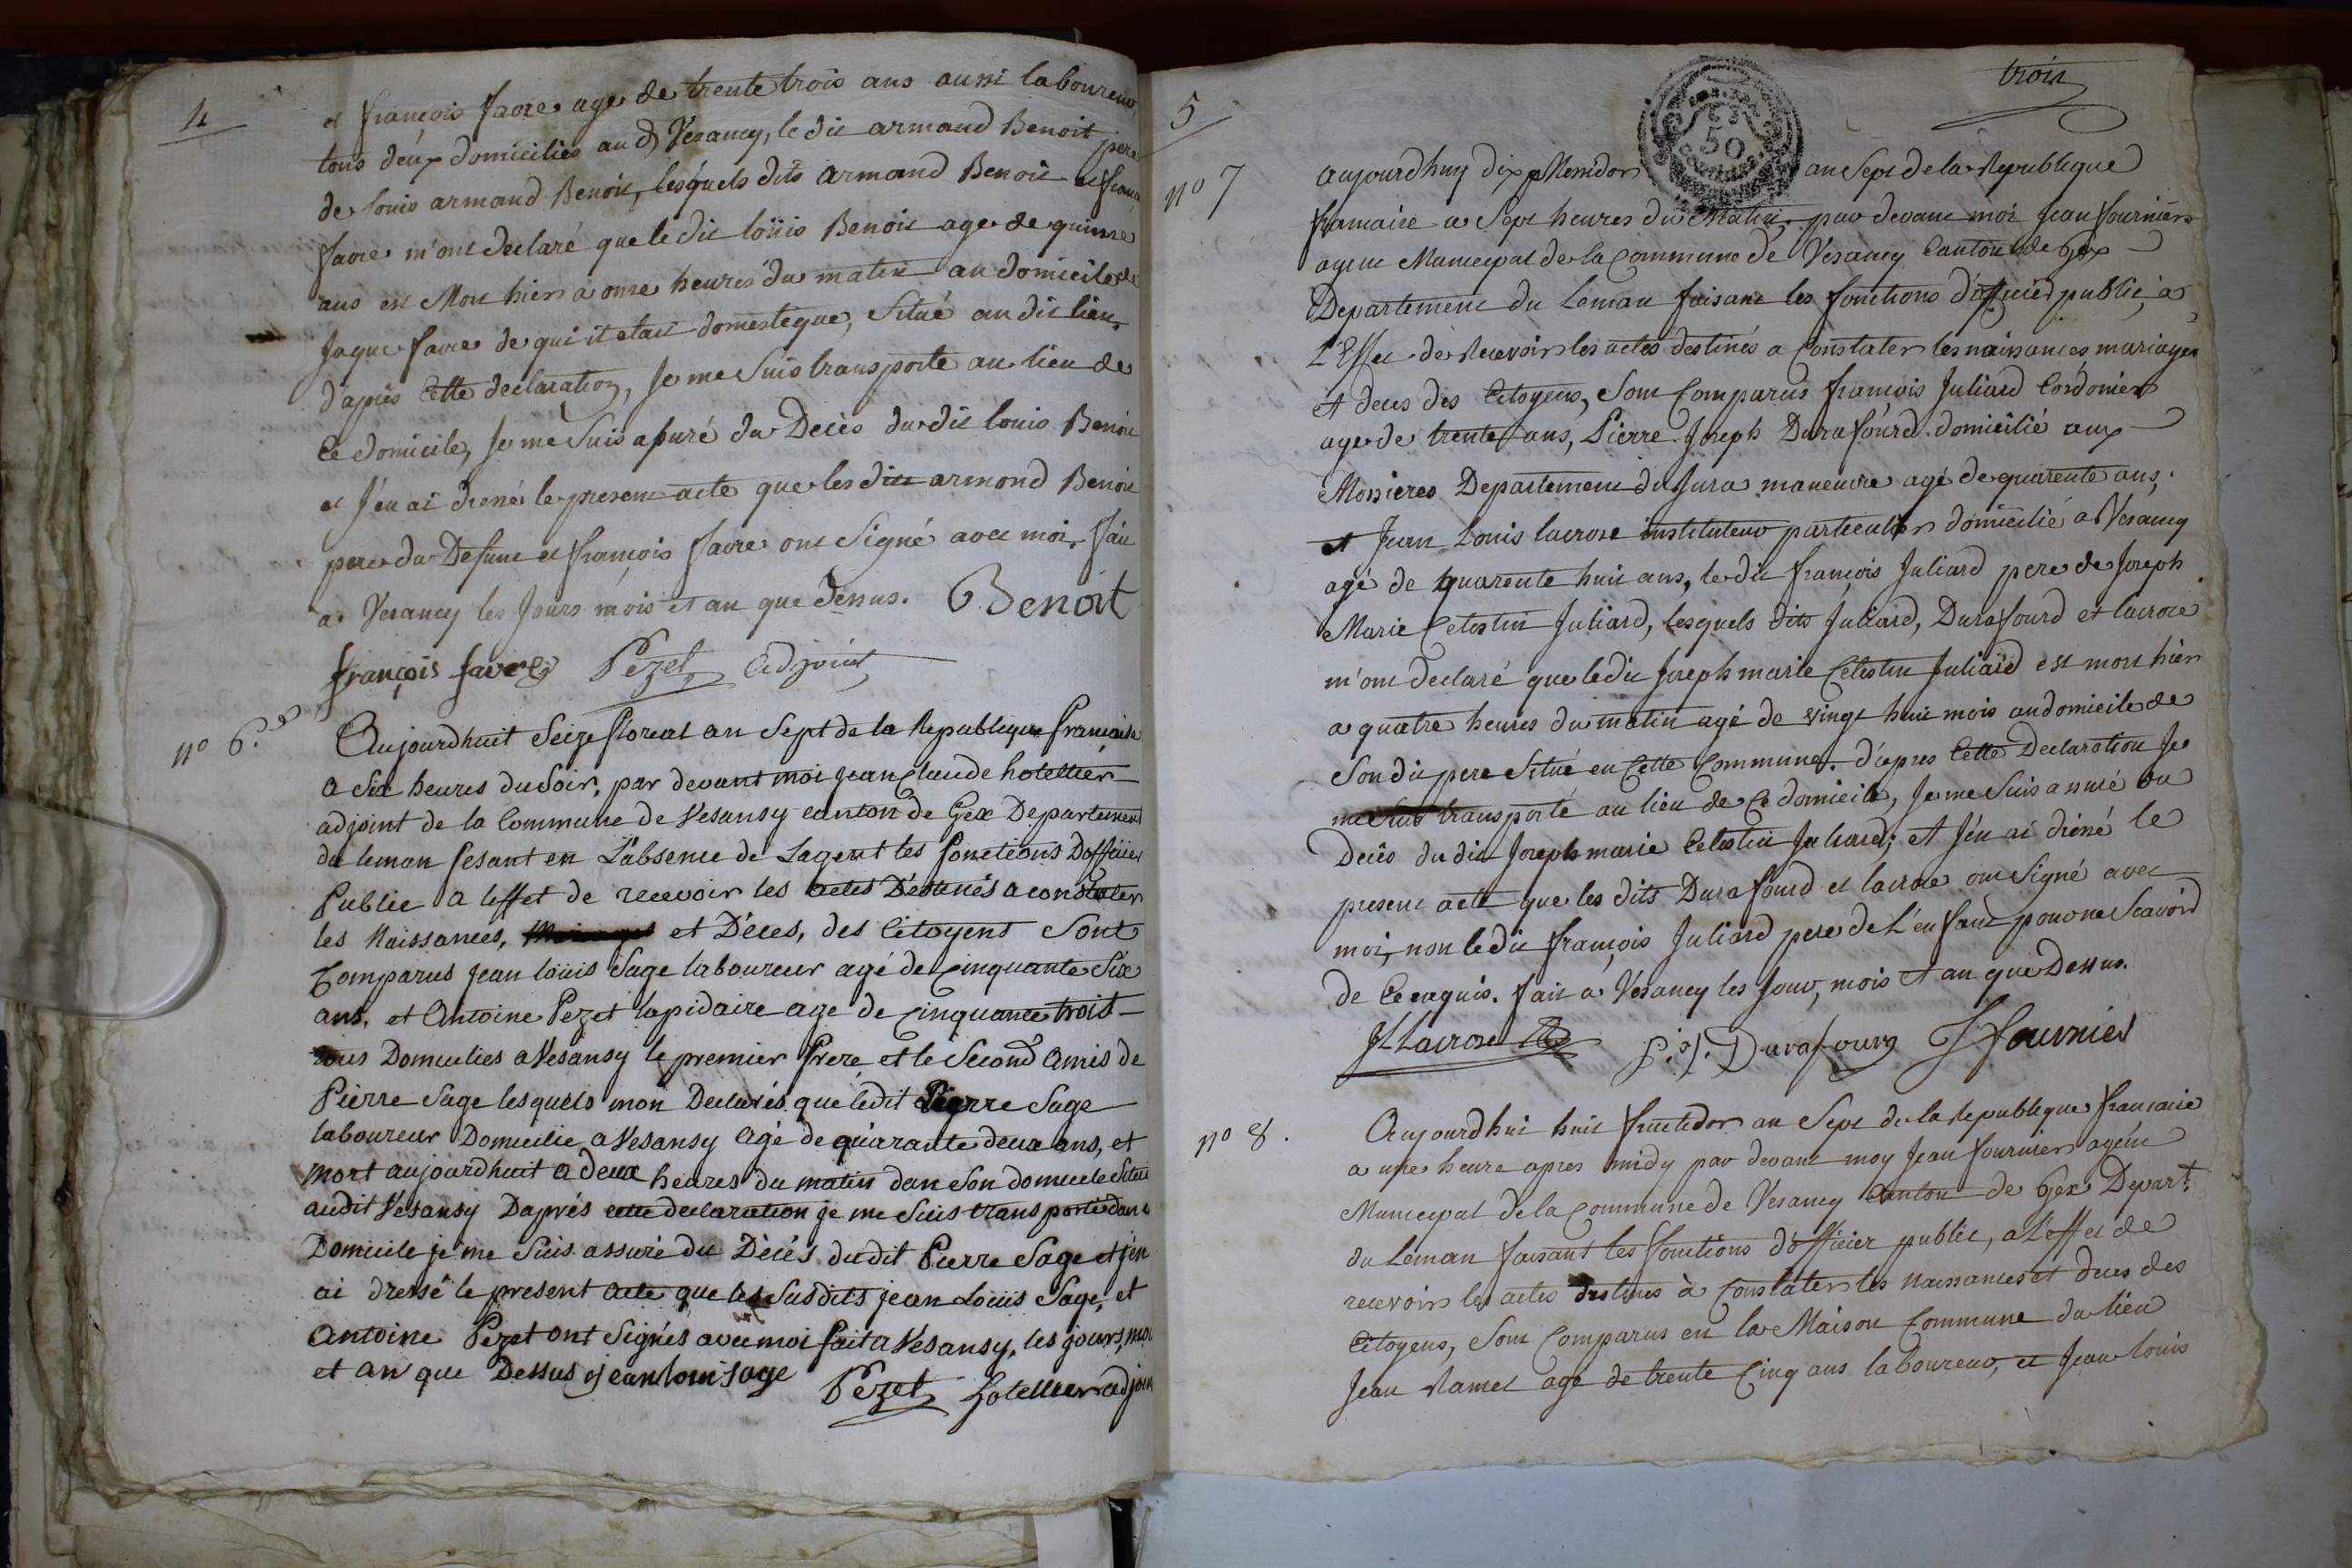 4
et françois favre age de trente trois ans aussi laboureur
tous deux domiciliés au d Vesancy, le dit armand Benoit pere
de louis armand Benoit, lesquels dits armand Benoit et françois
favre m'ont declaré que le dit loüis Benoit age de quinze
ans est Mort hier a onze heures du matin au domicile de
Jaque favre de qui il etait domestique, Situé au dit lieu,
d'après Cette declaration, Je me Suis transporté au lieu de
Ce domicile, Je me Suis assuré du Decès du dit louis Benoit
et J'en ai dressé le present acte que les dits armond Benoit
pere du Defunt et françois favre ont Signé avec moi, fait
a Vesancy les Jours mois et an que dessus. Benoit
françois favre Pezet adjoint
nº 6.
Aujourdhuit Seize floreal an Sept de la Republique française
a Six heures du Soir, par devant moi jean Claude hotellier
adjoint de la Commune de Vesansy canton de Gex Departement
du leman fesant en L'absence de Lagent les fonctions Dofficier
Public a leffet de recevoir les actes Déstinés a constater
les Naissances, et Déces, des Citoyens Sont
Comparus jean loüis Sage laboureur agé de Cinquante Six
ans, et Antoine Pezet lapidaire age de Cinquante trois
tous Domicilies a Vesansy le premier frere et le Second Amis de
Pierre Sage lesquels mon Declarés que ledit Pierre Sage
laboureur Domicilie a Vesansy Agé de quarante deux ans, et
Mort aujourdhuit a deux heures du matin dan Son domicile Situé
audit Vesansy Daprés cette declaration je me Suis transporté dan
Domicile je me Suis assuré du Décés dudit Pierre Sage et j'en
ai dressé le present Acte que les Susdits jean Loüis Sage, et
Antoine Pezet ont Signés avec moi fait a Vesansy, les jours, moi
et an que Dessus jean loui sage
Pezet hotellier adjoin
5
trois
50
nº 7
aujourdhuy dix Messidor an Sept de la Republique
francaise a Sept heures du Matin, par devant moi Jean fournier
agent Municipal de la Commune de Vesancy Canton de Gex
Departement du Leman faisant les fonctions d'officier public, a
L'Effet de Recevoir les actes destinés a Constater les naissances mariages
et deces des Citoyens, Sont Comparus francois Juliard Cordonier
age de trente ans, Pierre Joseph Durafourd domicilié aux
Mossieres Departement du Jura maneuvre agé de quarente ans,
et Jean Louis lacroze instituteur particulier domicilié a Vesancy
agé de quarente huit ans, le dit françois Juliard pere de Joseph
Marie Celestin Juliard, lesquels dits Juliard, Durafourd et lacroze
m'ont declaré que le dit Joseph marie Celestin Juliard est mort hier
a quatre heures du matin agé de vingt huit mois au domicile de
Son dit pere Situé en Cette Commune. d'apres Cette Declaration Je
me Suis transporté au lieu de Ce domicile, Je me Suis assuré du
Decès du dit Joseph marie Celestin Juliard; et J'en ai dressé le
present acte que les dits Durafourd et lacroze ont Signé avec
moi, non le dit françois Juliard pere de L'enfant pour ne Scavoir
de Ce enquis. fait a Vésancy les Jour, mois et an que Dessus.
JL Lacroze P. J. Durafourg J fournier
nº 8.
Aujourdhui huit fructidor an Sept de la Republique francaise
a une heure apres midy par devant moy Jean fournier agent
Municipal de la Commune de Vésancy Canton de Gex Depart.t
du Léman faisant les fonctions d'officier public, a L'effet de
recevoir les actes destinés à Constater les Naissances et deces des
Citoyens, Sont Comparus en la Maison Commune du lieu
Jean Ramel agé de trente Cinq ans laboureur, et Jean louis